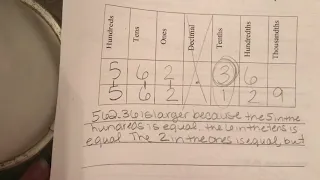 Hundreds Tens Ones Decimal Tenths Hundredths Thousandths
5 6 2 . 3 6
5 6 2 . 1 2 9
562.36 is larger because the 5 in the
hundreds is equal. the 6 in the tens is
equal The 2 in the ones is equal, but